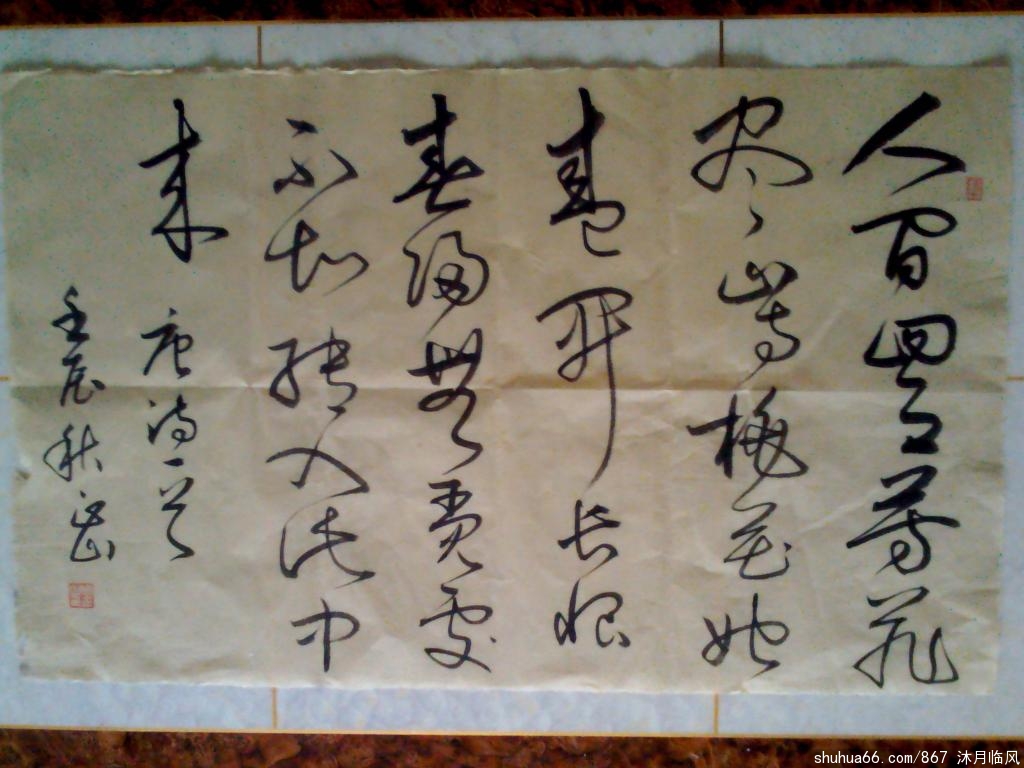 人间四月芳菲
尽山寺桃花始
盛开长恨
春归無觅处
不知转入此中
来 唐诗一首
壬辰秋
shuhua66.com/867 沐月临风